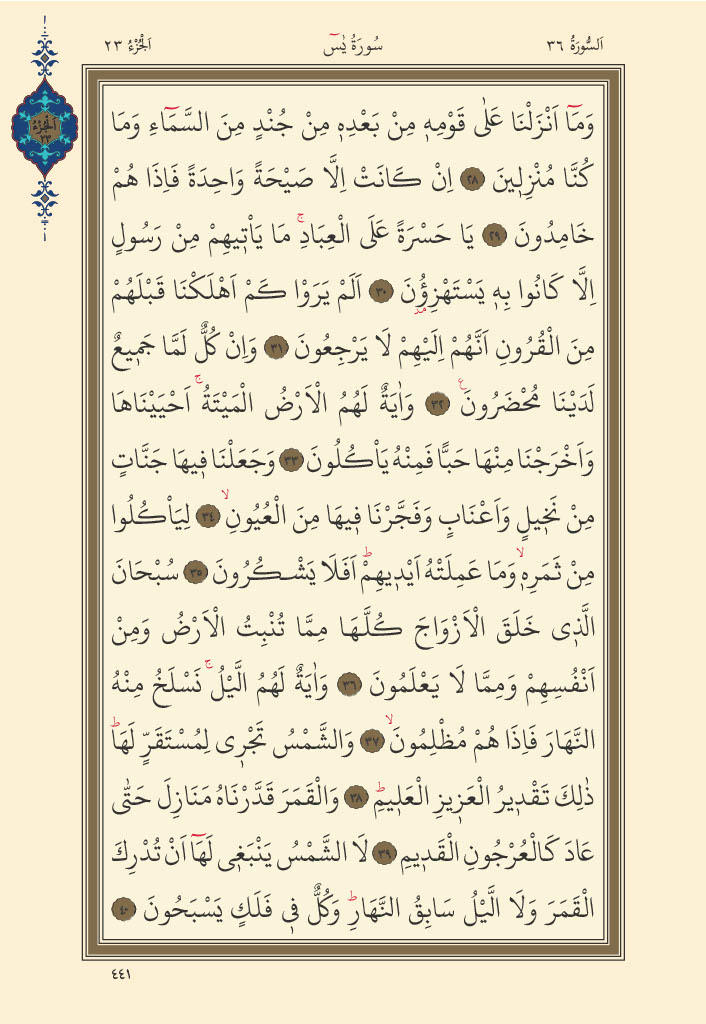 اَلسُّورَةُ ٣٦
سُورَةُ يٰسٓ
اَلْجُزْءُ ٢٣
اَلْجُزْءُ ٢٣
وَمَٓا اَنْزَلْنَا عَلٰى قَوْمِه۪ مِنْ بَعْدِه۪ مِنْ جُنْدٍ مِنَ السَّمَٓاءِ وَمَا
كُنَّا مُنْزِل۪ينَ ﴿٢٨﴾ اِنْ كَانَتْ اِلَّا صَيْحَةً وَاحِدَةً فَاِذَا هُمْ
خَامِدُونَ ﴿٢٩﴾ يَا حَسْرَةً عَلَى الْعِبَادِۚ مَا يَأْت۪يهِمْ مِنْ رَسُولٍ
اِلَّا كَانُوا بِه۪ يَسْتَهْزِؤُ۫نَ ﴿٣٠﴾ اَلَمْ يَرَوْا كَمْ اَهْلَكْنَا قَبْلَهُمْ
مِنَ الْقُرُونِ اَنَّهُمْ اِلَيْهِمْ لَا يَرْجِعُونَ ﴿٣١﴾ وَاِنْ كُلٌّ لَمَّا جَم۪يعٌ
لَدَيْنَا مُحْضَرُونَ۟ ﴿٣٢﴾ وَاٰيَةٌ لَهُمُ الْاَرْضُ الْمَيْتَةُۚ اَحْيَيْنَاهَا
وَاَخْرَجْنَا مِنْهَا حَبًّا فَمِنْهُ يَأْكُلُونَ ﴿٣٣﴾ وَجَعَلْنَا ف۪يهَا جَنَّاتٍ
مِنْ نَخ۪يلٍ وَاَعْنَابٍ وَفَجَّرْنَا ف۪يهَا مِنَ الْعُيُونِۙ ﴿٣٤﴾ لِيَأْكُلُوا
مِنْ ثَمَرِه۪ۙ وَمَا عَمِلَتْهُ اَيْد۪يهِمْۜ اَفَلَا يَشْكُرُونَ ﴿٣٥﴾ سُبْحَانَ
الَّذ۪ى خَلَقَ الْاَزْوَاجَ كُلَّهَا مِمَّا تُنْبِتُ الْاَرْضُ وَمِنْ
اَنْفُسِهِمْ وَمِمَّا لَا يَعْلَمُونَ ﴿٣٦﴾ وَاٰيَةٌ لَهُمُ الَّيْلُۚ نَسْلَخُ مِنْهُ
النَّهَارَ فَاِذَا هُمْ مُظْلِمُونَۙ ﴿٣٧﴾ وَالشَّمْسُ تَجْر۪ى لِمُسْتَقَرٍّ لَهَاۜ
ذٰلِكَ تَقْد۪يرُ الْعَز۪يزِ الْعَل۪يمِۜ ﴿٣٨﴾ وَالْقَمَرَ قَدَّرْنَاهُ مَنَازِلَ حَتّٰى
عَادَ كَالْعُرْجُونِ الْقَد۪يمِ ﴿٣٩﴾ لَا الشَّمْسُ يَنْبَغ۪ى لَهَٓا اَنْ تُدْرِكَ
الْقَمَرَ وَلَا الَّيْلُ سَابِقُ النَّهَارِۜ وَكُلٌّ ف۪ى فَلَكٍ يَسْبَحُونَ ﴿٤٠﴾
٤٤١